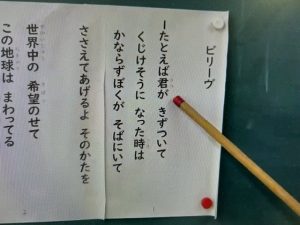 ビリーヴ
1 たとえば君が きずついて
くじけそうに なった時は
かならずぼくが そばにいて
ささえてあげるよ そのかたを
世界中の 希望のせて
この地球は まわってる